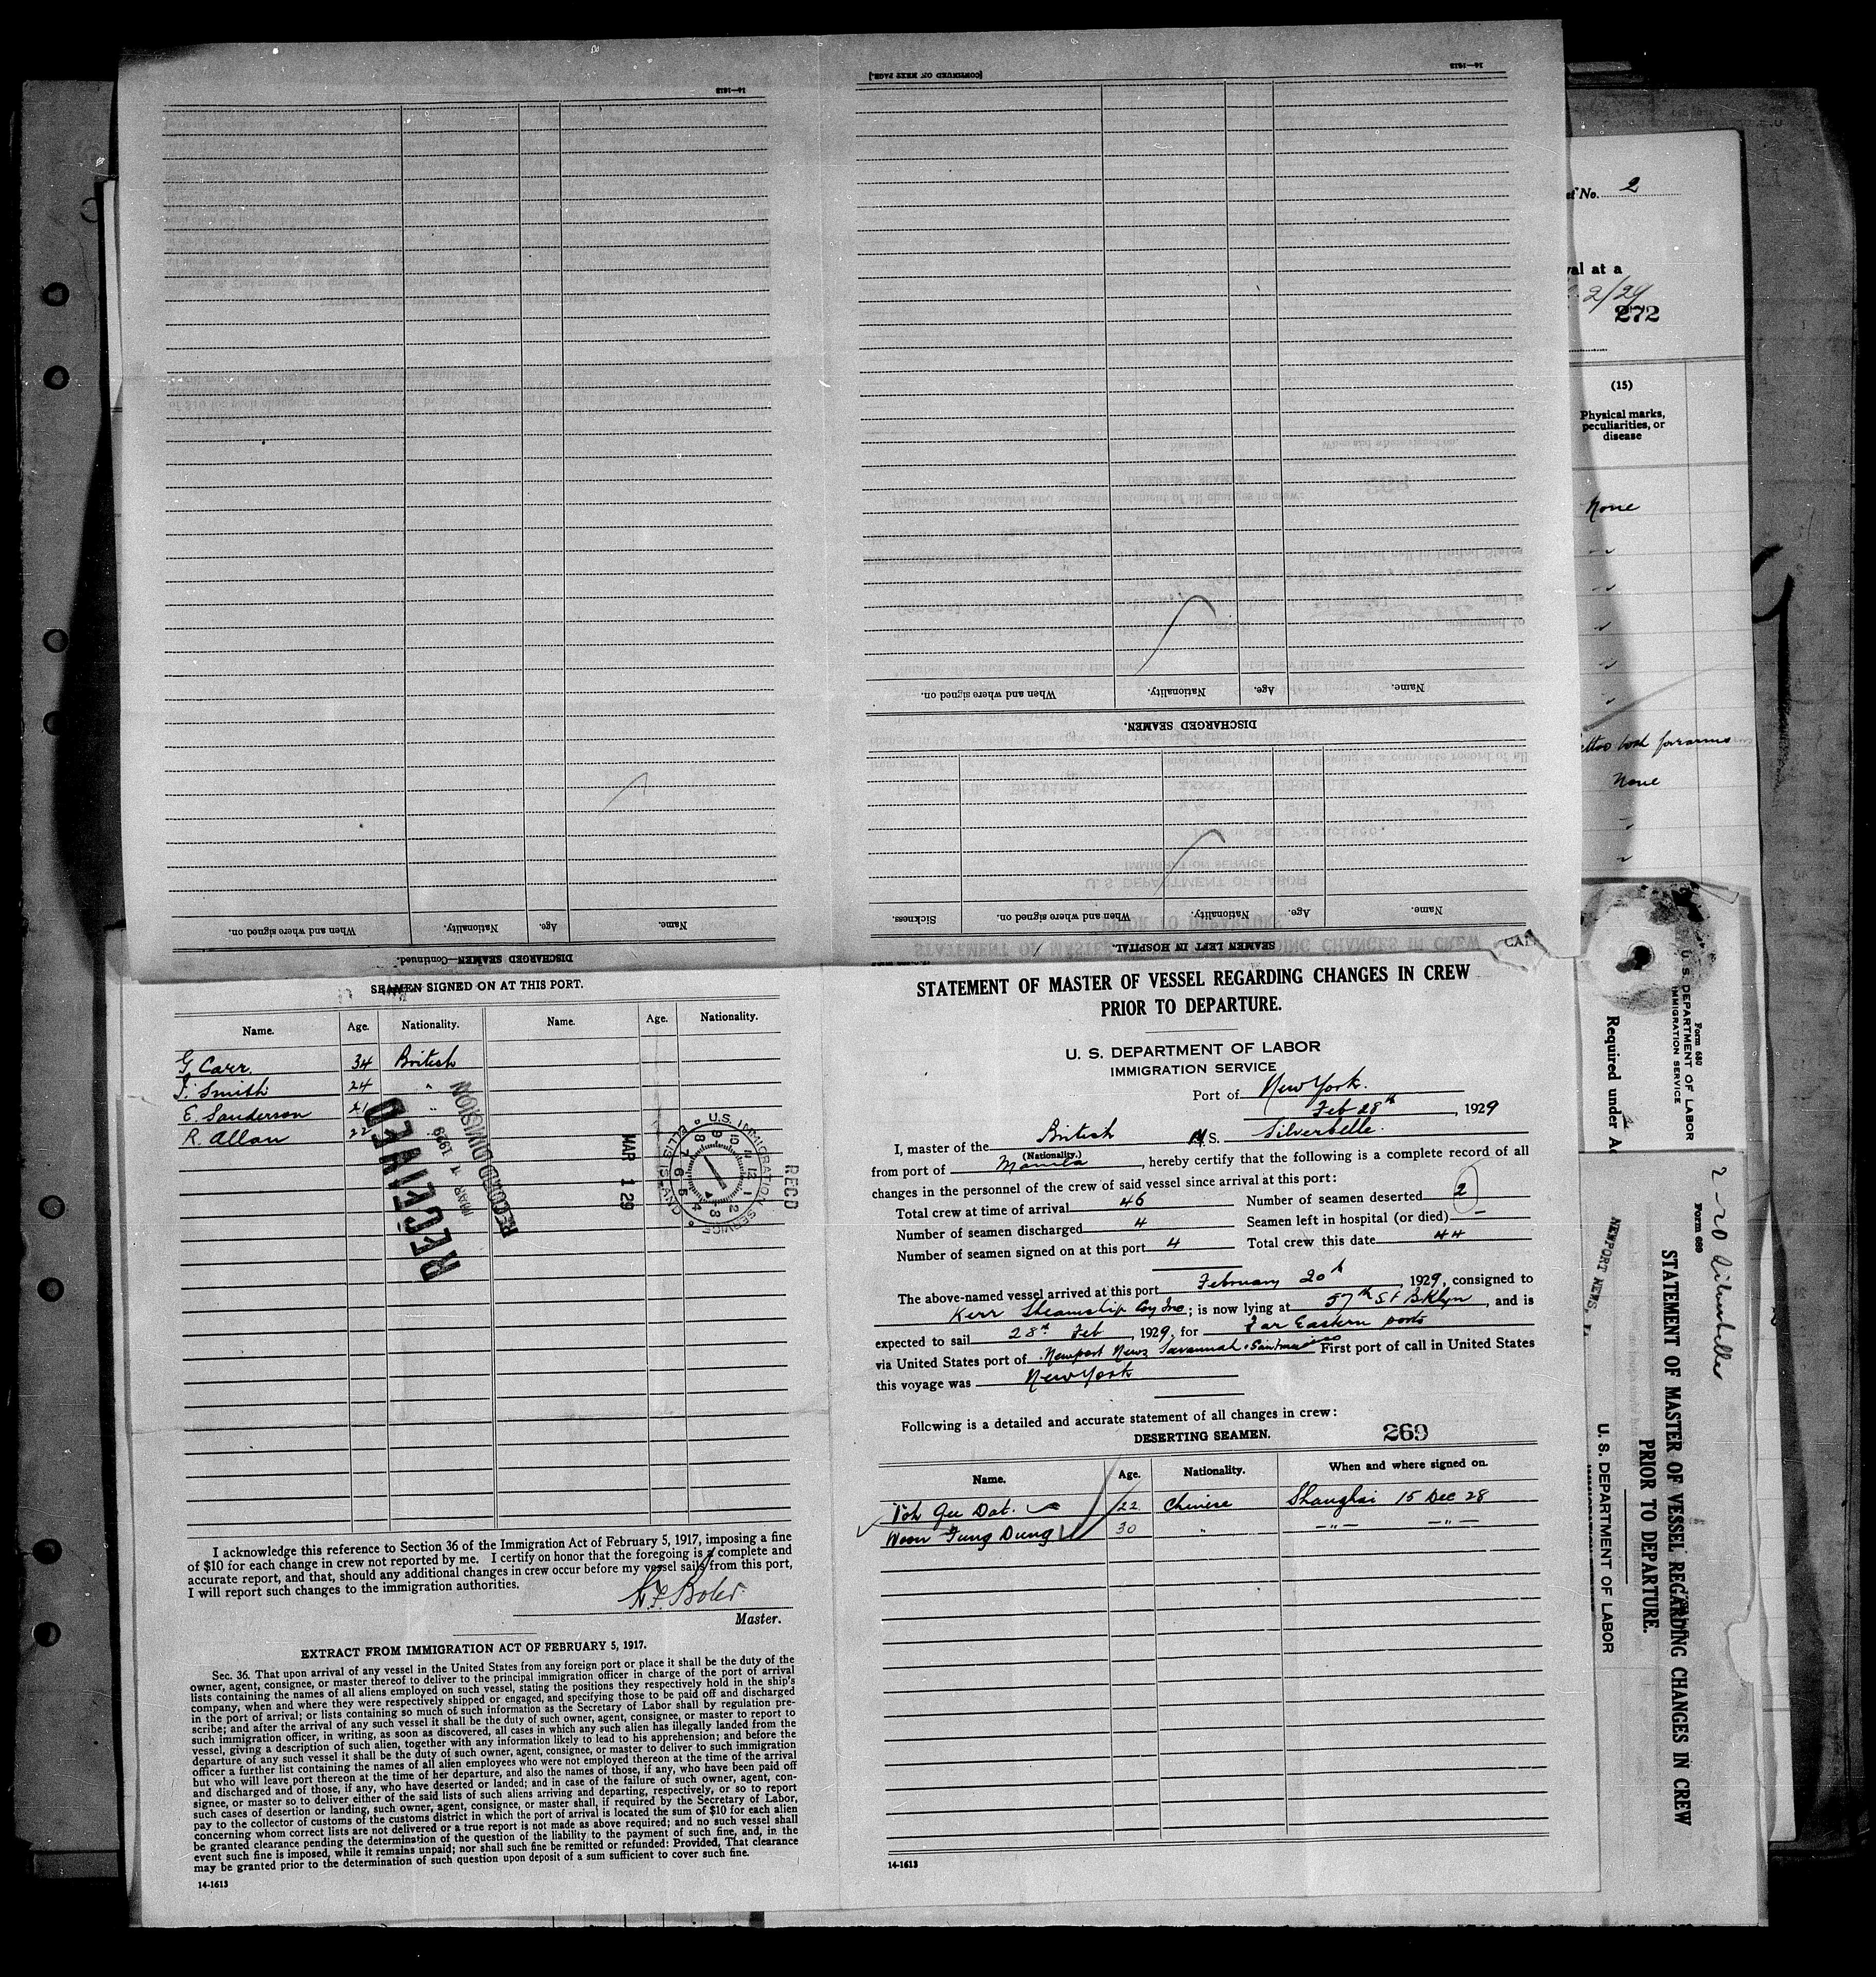 14-1613
[CONTINUED ON NEXT PAGE.]
14-1613
Name. Age. Nationality. When and where signed on.
DISCHARGED SEAMEN.
Name. Age. Nationality. When and where signed on. Sickness.
SEAMEN LEFT IN HOSPITAL.
Name. Age. Nationality. When and where signed on.
DISCHARGED SEAMEN—Continued.
SEAMEN SIGNED ON AT THIS PORT.
Name. Age. Nationality. Name. Age. Nationality.
G Carr. 34 British
J. Smith 24 "
E. Sanderson 21 "
R. Allan 22 "
RECEIVED
MAR 1 1929
RECORD DIVISION
MAR 1 29
U.S. IMMIGRATION SERVICE
ELLIS ISLAND
RECD
I acknowledge this reference to Section 36 of the Immigration Act of February 5, 1917, imposing a fine
of $10 for each change in crew not reported by me. I certify on honor that the foregoing is a complete and
accurate report, and that, should any additional changes in crew occur before my vessel sails from this port,
I will report such changes to the immigration authorities.
Master.
EXTRACT FROM IMMIGRATION ACT OF FEBRUARY 5, 1917.
Sec. 36. That upon arrival of any vessel in the United States from any foreign port or place it shall be the duty of the
owner, agent, consignee, or master thereof to deliver to the principal immigration officer in charge of the port of arrival
lists containing the names of all aliens employed on such vessel, stating the positions they respectively hold in the ship's
company, when and where they were respectively shipped or engaged, and specifying those to be paid off and discharged
in the port of arrival; or lists containing so much of such information as the Secretary of Labor shall by regulation pre-
scribe; and after the arrival of any such vessel it shall be the duty of such owner, agent, consignee, or master to report to
such immigration officer, in writing, as soon as discovered, all cases in which any such alien has illegally landed from the
vessel, giving a description of such alien, together with any information likely to lead to his apprehension; and before the
departure of any such vessel it shall be the duty of such owner, agent, consignee, or master to deliver to such immigration
officer a further list containing the names of all alien employees who were not employed thereon at the time of the arrival
but who will leave port thereon at the time of her departure, and also the names of those, if any, who have been paid off
and discharged and of those, if any, who have deserted or landed; and in case of the failure of such owner, agent, con-
signee, or master so to deliver either of the said lists of such aliens arriving and departing, respectively, or so to report
such cases of desertion or landing, such owner, agent, consignee, or master shall, if required by the Secretary of Labor,
pay to the collector of customs of the customs district in which the port of arrival is located the sum of $10 for each alien
concerning whom correct lists are not delivered or a true report is not made as above required; and no such vessel shall
be granted clearance pending the determination of the question of the liability to the payment of such fine, and, in the
event such fine is imposed, while it remains unpaid; nor shall such fine be remitted or refunded: Provided, That clearance
may be granted prior to the determination of such question upon deposit of a sum sufficient to cover such fine.
14-1613
STATEMENT OF MASTER OF VESSEL REGARDING CHANGES IN CREW
PRIOR TO DEPARTURE.
U. S. DEPARTMENT OF LABOR
IMMIGRATION SERVICE
Port of New York.
Feb 28th, 1929
I, master of the British M.S. Silverbelle.
(Nationality.)
from port of Manila, hereby certify that the following is a complete record of all
changes in the personnel of the crew of said vessel since arrival at this port:
Total crew at time of arrival 46 Number of seamen deserted 2
Number of seamen discharged 4 Seamen left in hospital (or died) —
Number of seamen signed on at this port 4 Total crew this date 44
The above-named vessel arrived at this port February 20th, 1929, consigned to
Kerr Steamship Coy Inc; is now lying at 57th St Bklyn, and is
expected to sail 28th Feb, 1929, for Far Eastern ports
via United States port of Newport News Savannah First port of call in United States
this voyage was New York
Following is a detailed and accurate statement of all changes in crew:
DESERTING SEAMEN. 269
Name. Age. Nationality. When and where signed on.
Gee Dat. 22 Chinese Shanghai 15 Dec 28
Woon Fung Dung 30 " —"— —"—
14-1613
No. 2
val at a
2/29
272
(15)
Physical marks,
peculiarities, or
disease
None
both forearms
None
Form 680
U. S. DEPARTMENT OF LABOR
IMMIGRATION SERVICE
Required under A
2-20 Silverbelle
Form 689
STATEMENT OF MASTER OF VESSEL REGARDING CHANGES IN CREW
PRIOR TO DEPARTURE.
U. S. DEPARTMENT OF LABOR
NEWPORT NEWS,